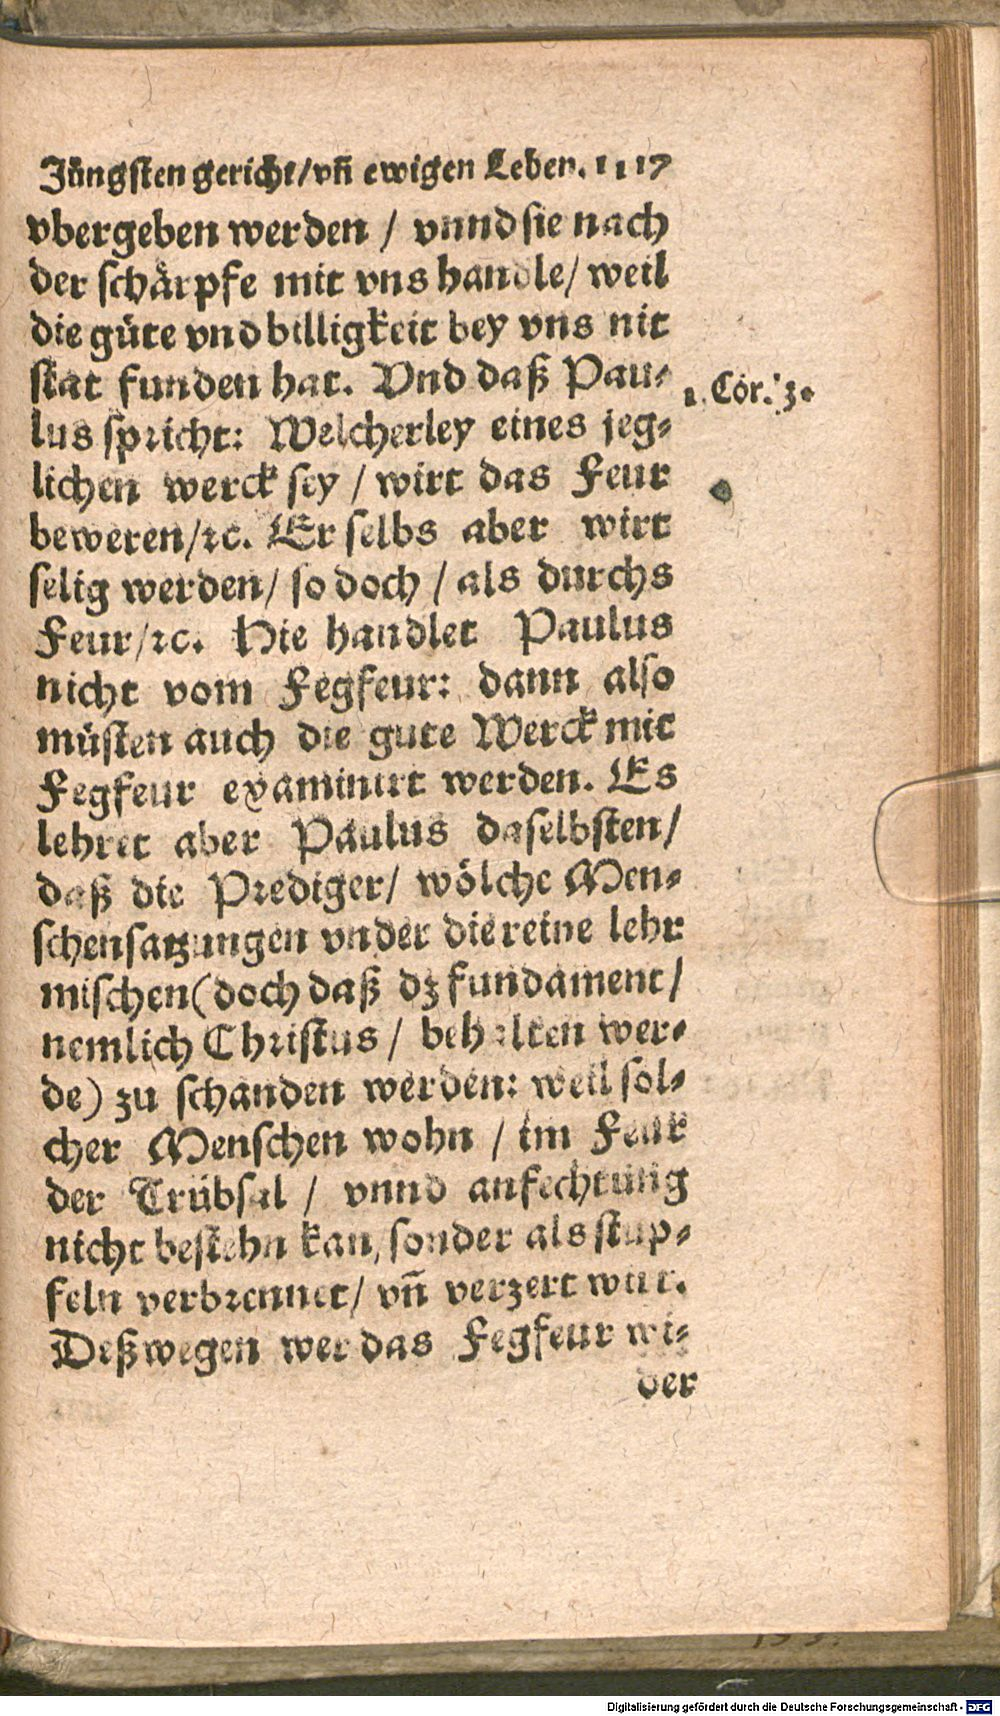 Jüngsten gericht/vn̄ ewigen Leben. 1117
vbergeben werden / vnnd sie nach
der schärpfe mit vns handle/ weil
die güte vnd billigkeit bey vns nit
stat funden hat. Vnd daß Pau-
1. Cor. 3.
lus spricht: Welcherley eines jeg-
lichen werck sey / wirt das Feur
beweren/ꝛc. Er selbs aber wirt
selig werden/ so doch / als durchs
Feur/ꝛc. Hie handlet Paulus
nicht vom Fegfeur: dann also
müsten auch die gute Werck mit
Fegfeur examinirt werden. Es
lehret aber Paulus daselbsten/
daß die Prediger/ wölche Men-
schensatzungen vnder die reine lehr
mischen(doch daß dz fundament/
nemlich Christus / behalten wer-
de) zu schanden werden: weil sol-
cher Menschen wohn / im Feur
der Trübsal / vnnd anfechtung
nicht bestehn kan, sonder als stup-
feln verbrennet/ vn̄ verzert wirt.
Deßwegen wer das Fegfeur wi-
der
Digitalisierung gefördert durch die Deutsche Forschungsgemeinschaft - DFG